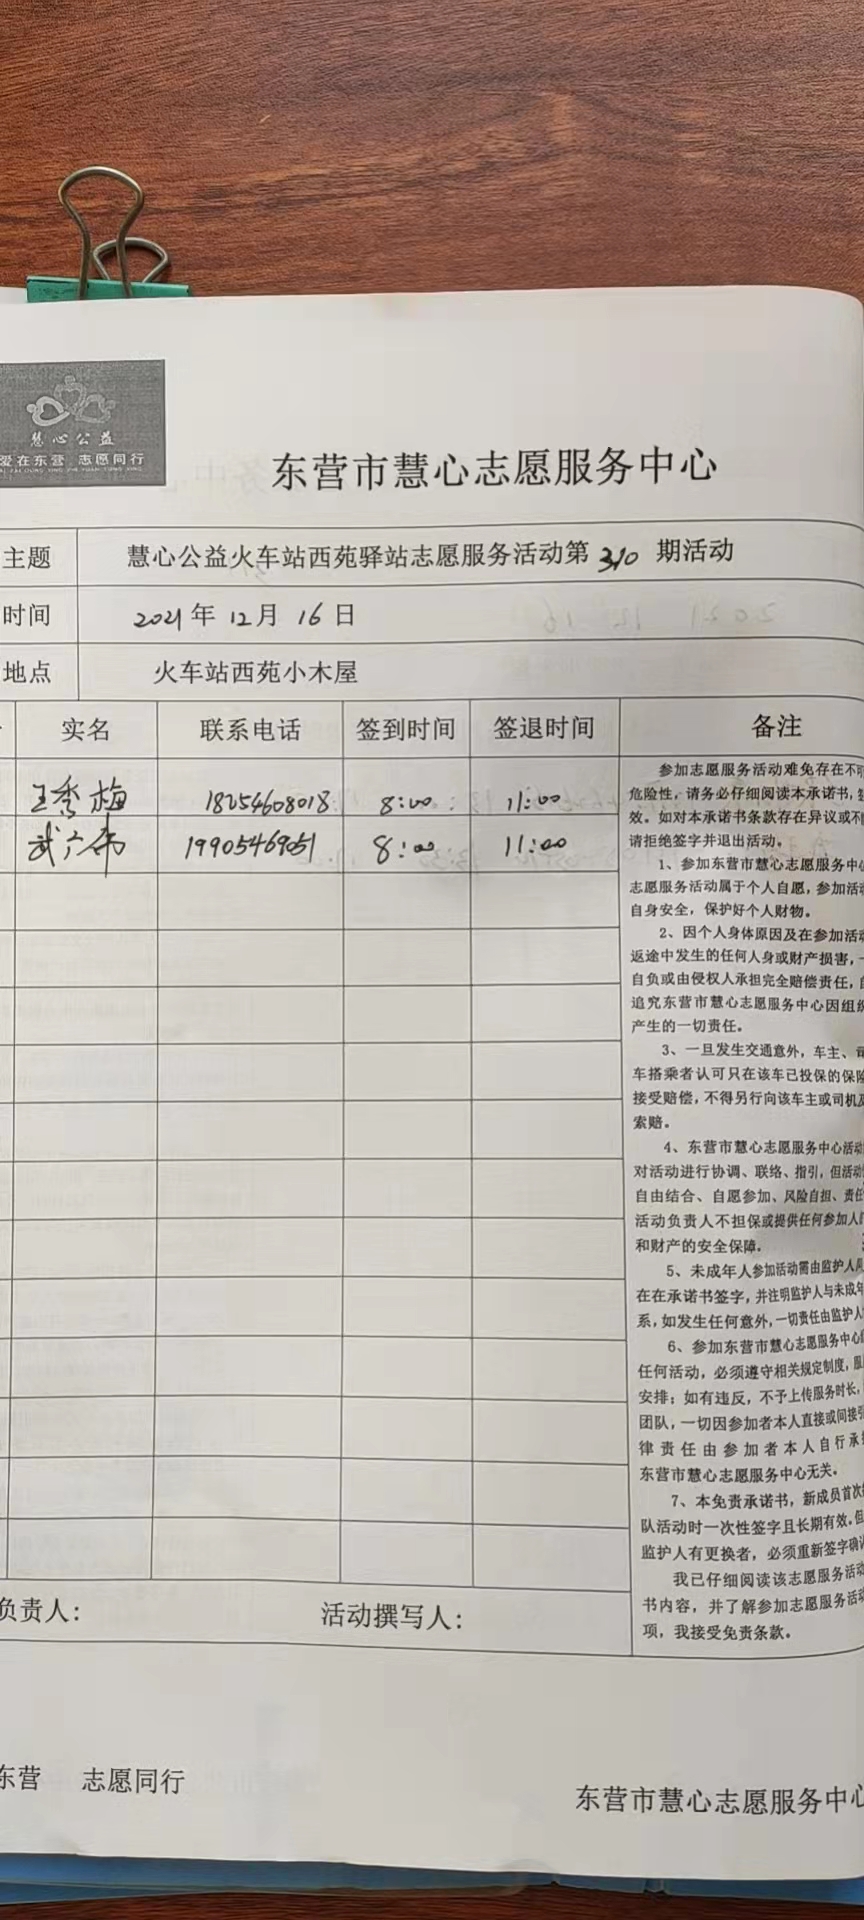 慧心公益
爱在东营 志愿同行
东营市慧心志愿服务中心
主题 慧心公益火车站西苑驿站志愿服务活动第310期活动
时间 2021年12月16日
地点 火车站西苑小木屋
实名 联系电话 签到时间 签退时间 备注
王秀梅 18254608018 8:00 11:00
武广 19905469051 8:00 11:00
参加志愿服务活动难免存在不可
危险性,请务必仔细阅读本承诺书,
效。如对本承诺书条款存在异议或不
请拒绝签字并退出活动。
1、参加东营市慧心志愿服务中心
志愿服务活动属于个人自愿,参加活动
自身安全,保护好个人财物。
2、因个人身体原因及在参加活动
返途中发生的任何人身或财产损害,一
自负或由侵权人承担完全赔偿责任,自
追究东营市慧心志愿服务中心因组织
产生的一切责任。
3、一旦发生交通意外,车主、司
车搭乘者认可只在该车已投保的保险
接受赔偿,不得另行向该车主或司机及
索赔。
4、东营市慧心志愿服务中心活动
对活动进行协调、联络、指引,但活动
自由结合、自愿参加、风险自担、责任
活动负责人不担保或提供任何参加人
和财产的安全保障。
5、未成年人参加活动需由监护人
在在承诺书签字,并注明监护人与未成年
系,如发生任何意外,一切责任由监护人
6、参加东营市慧心志愿服务中心
任何活动,必须遵守相关规定制度,服
安排;如有违反,不予上传服务时长,
团队,一切因参加者本人直接或间接引
律责任由参加者本人自行承担
东营市慧心志愿服务中心无关。
7、本免责承诺书,新成员首次
队活动时一次性签字且长期有效。但
监护人有更换者,必须重新签字确认
我已仔细阅读该志愿服务活动
书内容,并了解参加志愿服务活动
项,我接受免责条款。
负责人: 活动撰写人:
东营 志愿同行
东营市慧心志愿服务中心